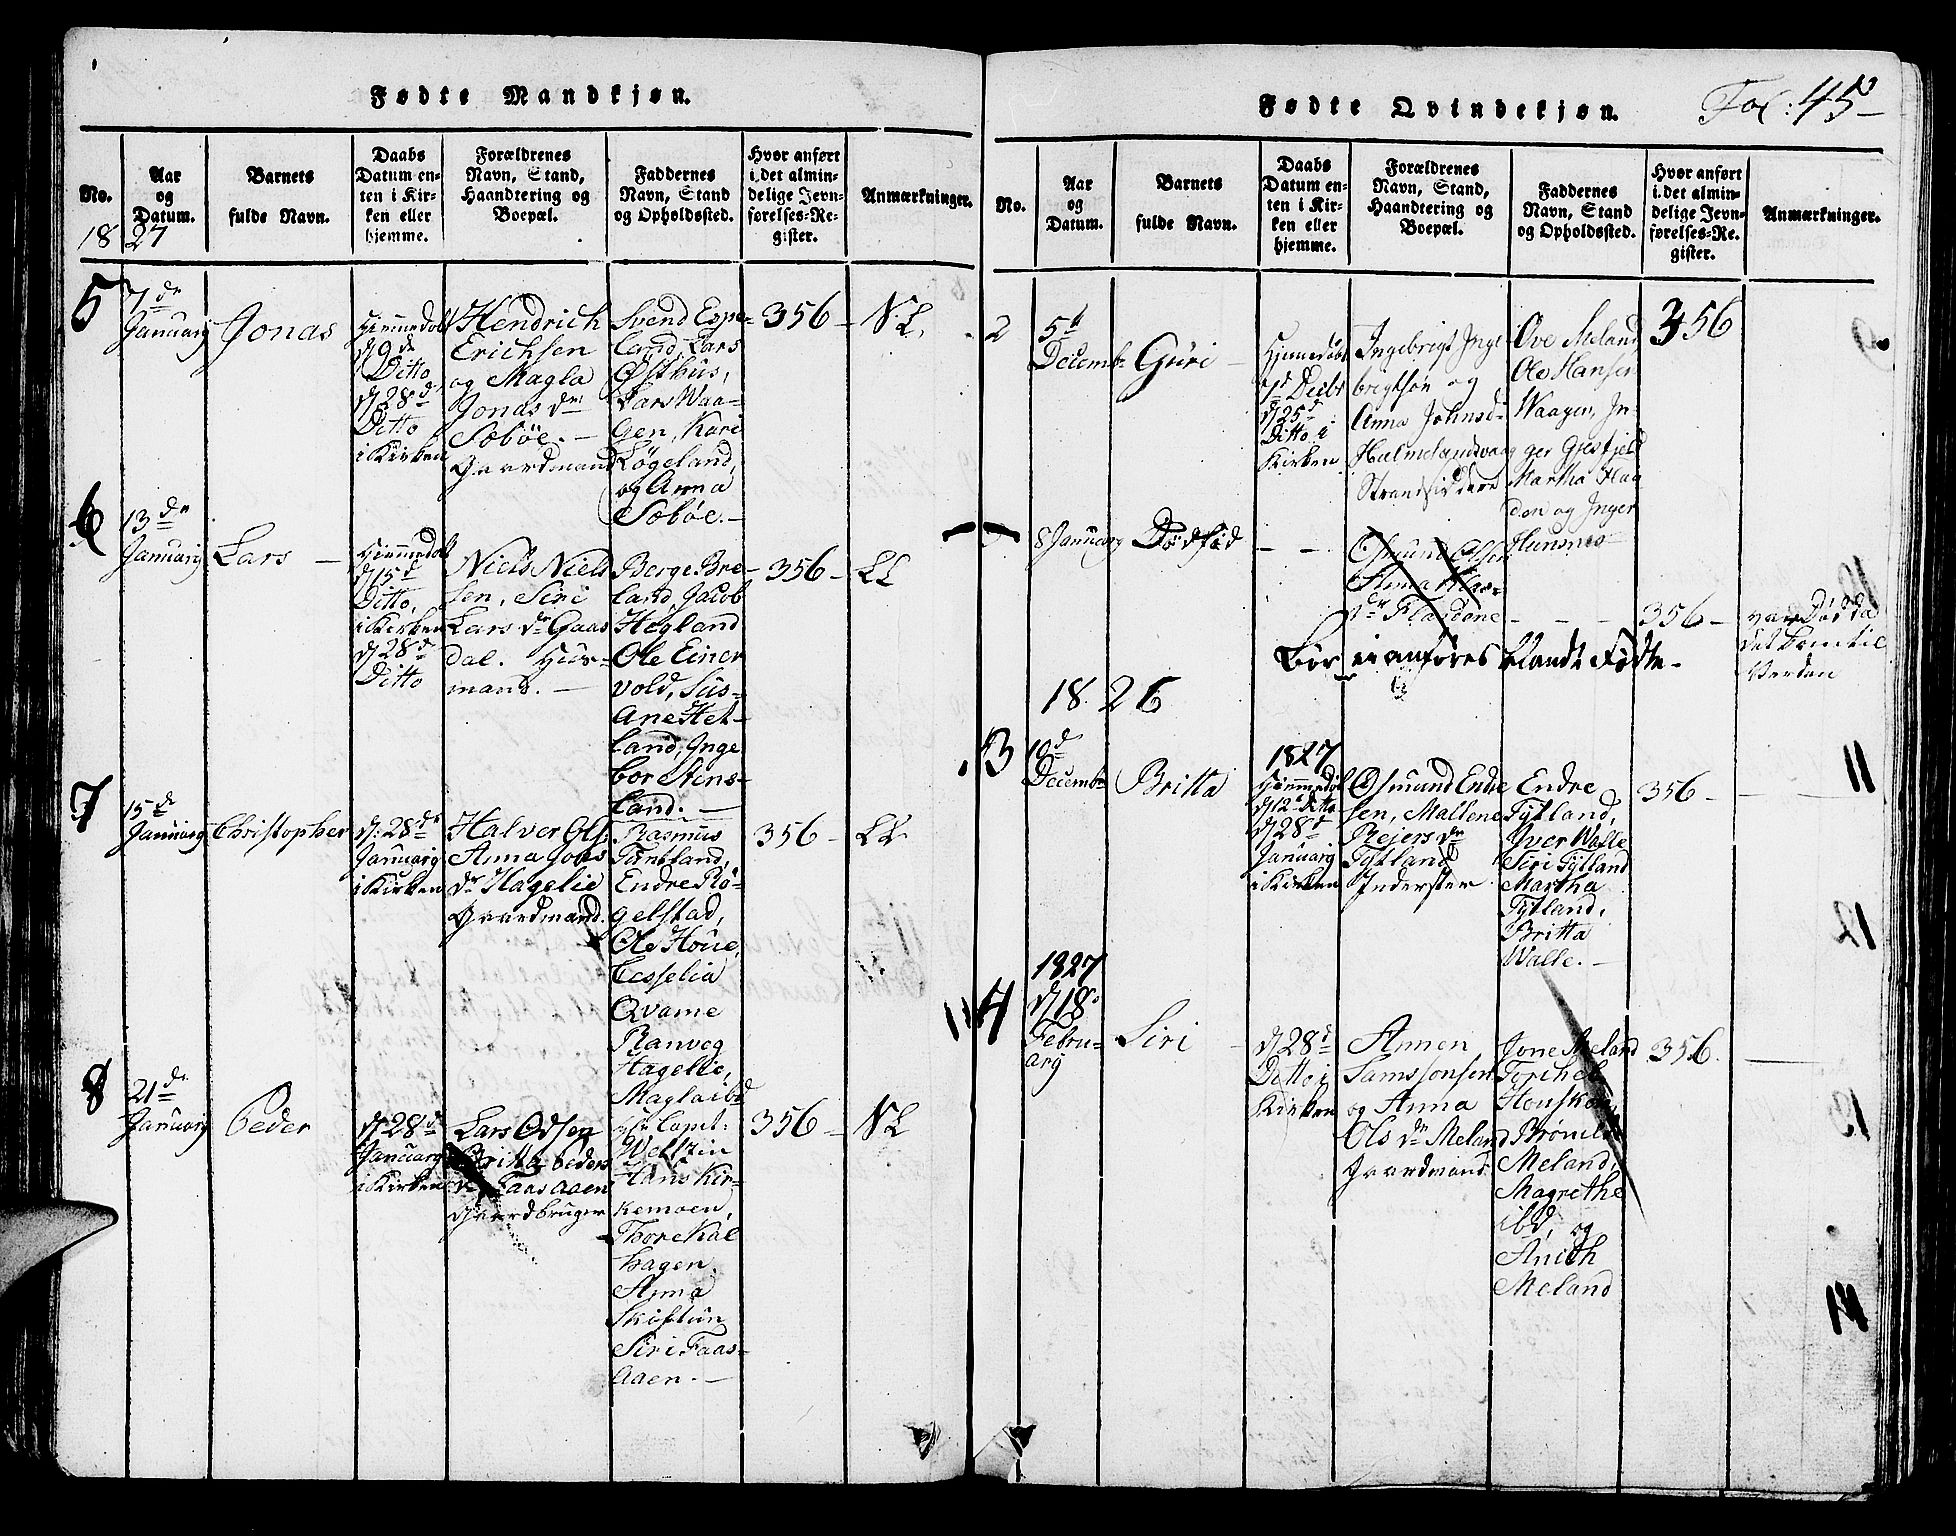 Fødte Mandkjøn.
No.
Aar
og
Datum.
Barnets
fulde Navn.
Daabs
Datum en-
ten i Kir-
ken eller
hjemme.
Forældrenes
Navn, Stand,
Haandtering og
Boepæl.
Faddernes
Navn, Stand
og Opholdssted.
Hvor anført
i det almin-
delige Jevn-
førelses-Re-
gister.
Anmærkninger.
1827
5
7de
January
Jonas
Hjemmedøbt
d 9de
Ditto
d 28de
Ditto
i Kirken
Hendrich
Erichsen
og Magla
Jonas dr
Søbøe. —
Gaardmand
Svend Espe-
land, Lars
Østhus,
Lars Waa-
gen, Kari
Løgeland,
og Anna
Søbøe. —
356 —
NL.
6
13de
January
Lars —
Hjemmedøbt
d 15de
Ditto,
i Kirken
d 28de
Ditto
Niels Niel-
sen, Siri
Lars dr Gaas
dal. Huus-
mand. —
Berge Bre-
land, Jacob
Hegland
Ole Einer
vold, Sus-
Ane Het-
land, Inge
bor Stens-
land. —
356 —
LL
7
15de
January
Christopher
d: 28de
January
i Kirken
Halver Ols:
Anna Jobs
dr Hagelie
Gaardmand.
Rasmus
Tuntland,
Endre Rø-
gelstad,
Ole Houe,
Cesselia
Qvame
Ranveg
Hagelie,
Magla ibd
356 —
LL
8
21de
January
Peder
d 28de
January
i Kirken
Lars Odsen
Britta Peders
dr Faasaaen
Gaardbruger
Capit:
Welstin
Hans Kir-
kemoen,
Thore Kal
hagen
Anna
Skiftun
Siri Faas-
aaen. —
356 —
NL
Fødte Qvindekjøn.
Fol: 45
No.
Aar
og
Datum.
Barnets
fulde Navn.
Daabs
Datum en-
ten i Kir-
ken eller
hjemme.
Forældrenes
Navn, Stand,
Haandtering og
Boepæl.
Faddernes
Navn, Stand
og Opholdssted.
Hvor anført
i det almin-
delige Jevn-
førelses-Re-
gister.
Anmærkninger.
2
5d
Decemb
Guri —
Hjemedøbt
Decbr
d 25d
Ditto i
Kirken
Ingebrigt Inge
brigtsøn og
Anna Johnsd
Halmelandsvaag
Strandsiddere
Ove Meland
Ole Hansen
Waagen, In-
ger Gjesfjeld
Martha Flaa
den og Inger
Hunsnes
356
8 January
Dødfød
— —
Osmund Olsen
Anna
dr Flaadene
356 —
var Død da
det kom til
Verden
Bør ei anføres blandt Fødte.
1826
3
10d
Decemb
Britta
1827
Hjemmedøbt
d 12 Ditto
d 28d
January
i Kirken
Osmund Endre
sen, Mallene
Rejers dr
Tytland
Inderster
Endre
Tytland,
Iver Walle
Siri Tytland
Martha
Tytland,
Britta
Walle. —
356 —
4
1827
d 18d
Febru-
ary
Siri
d 28d
Ditto i
Kirken
Annen
Samssonsen
og Anna
Ols dr Meland
Gaardmand
Jone Meland
Torkel
Meland,
Magrethe
ibd, og
Anith
Meland
356.
11
12